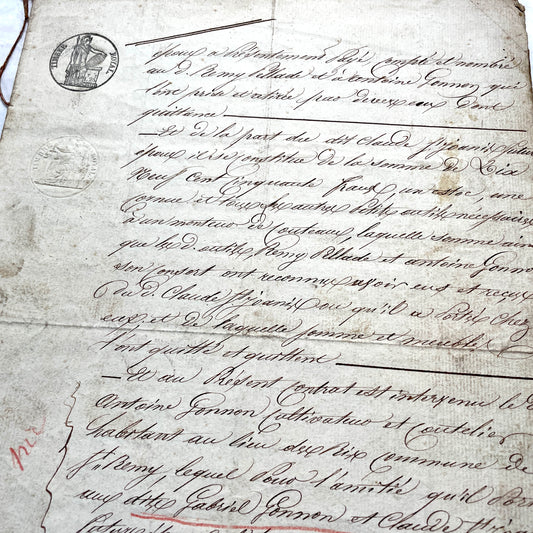 TIMBRE ROYAL
époux a présentement payé compté et nombré
au d. Remy Pillade et à antoine Gonnon qui
l'ont prise et retirée pas devers eux dont
quittance
— Et de la part du dit Claude St joanis futur
époux il se constitue de la somme de
Neuf Cent Cinquante francs un
et autres petits outils nécessaires
à un monteur de Couteaux, laquelle somme ain
que les d. outils, Remy Pillade et antoine Gonnon
son Consort ont reconnu avoir eus et reçus
Du d. Claude St joanis ou qu'il a portés chez
eux, et de laquelle somme et meubles
l'ont quitté et quittent
— Et au Présent Contrat est intervenu le
antoine Gonnon Cultivateur et Coutelier
habitant au lieu des Prix Commune de
St Remy lequel Pour l'amitié qu'il Por
aux dits Gabriel Gonnon et Claude